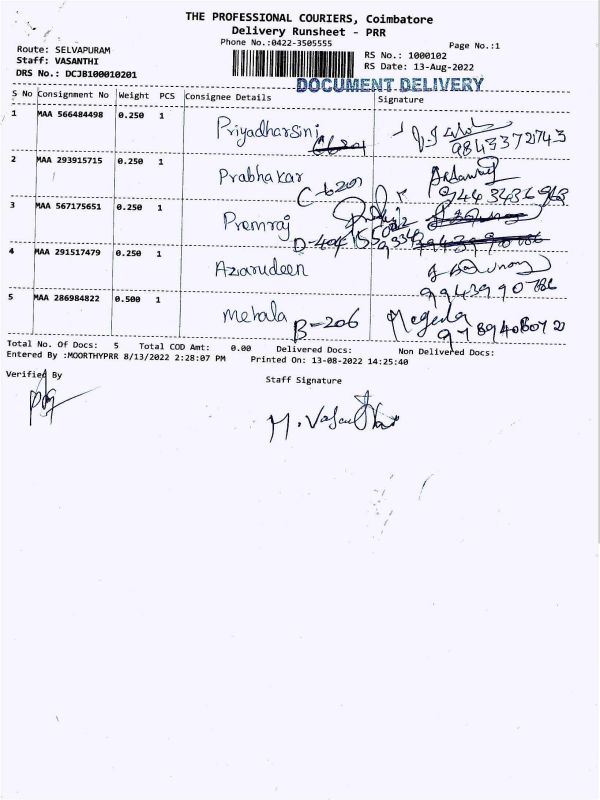 THE PROFESSIONAL COURIERS, Coimbatore
Delivery Runsheet - PRR
Phone No.:0422-3505555
Page No.:1
Route: SELVAPURAM
Staff: VASANTHI
DRS No.: DCJB100010201
RS No.: 1000102
RS Date: 13-Aug-2022
DOCUMENT DELIVERY
S No Consignment No Weight PCS Consignee Details Signature
1 MAA 566484498 0.250 1 Priyadharsini
9843372743
2 MAA 293915715 0.250 1 Prabhakar
C-b201
3 MAA 567175651 0.250 1 Premraj
D-404
4 MAA 291517479 0.250 1 Aziarudeen
9943990786
5 MAA 286984822 0.500 1 Mekala B-206
Total No. Of Docs: 5 Total COD Amt: 0.00 Delivered Docs: Non Delivered Docs:
Entered By :MOORTHYPRR 8/13/2022 2:28:07 PM Printed On: 13-08-2022 14:25:40
Verified By
Staff Signature
M. Vasanthi